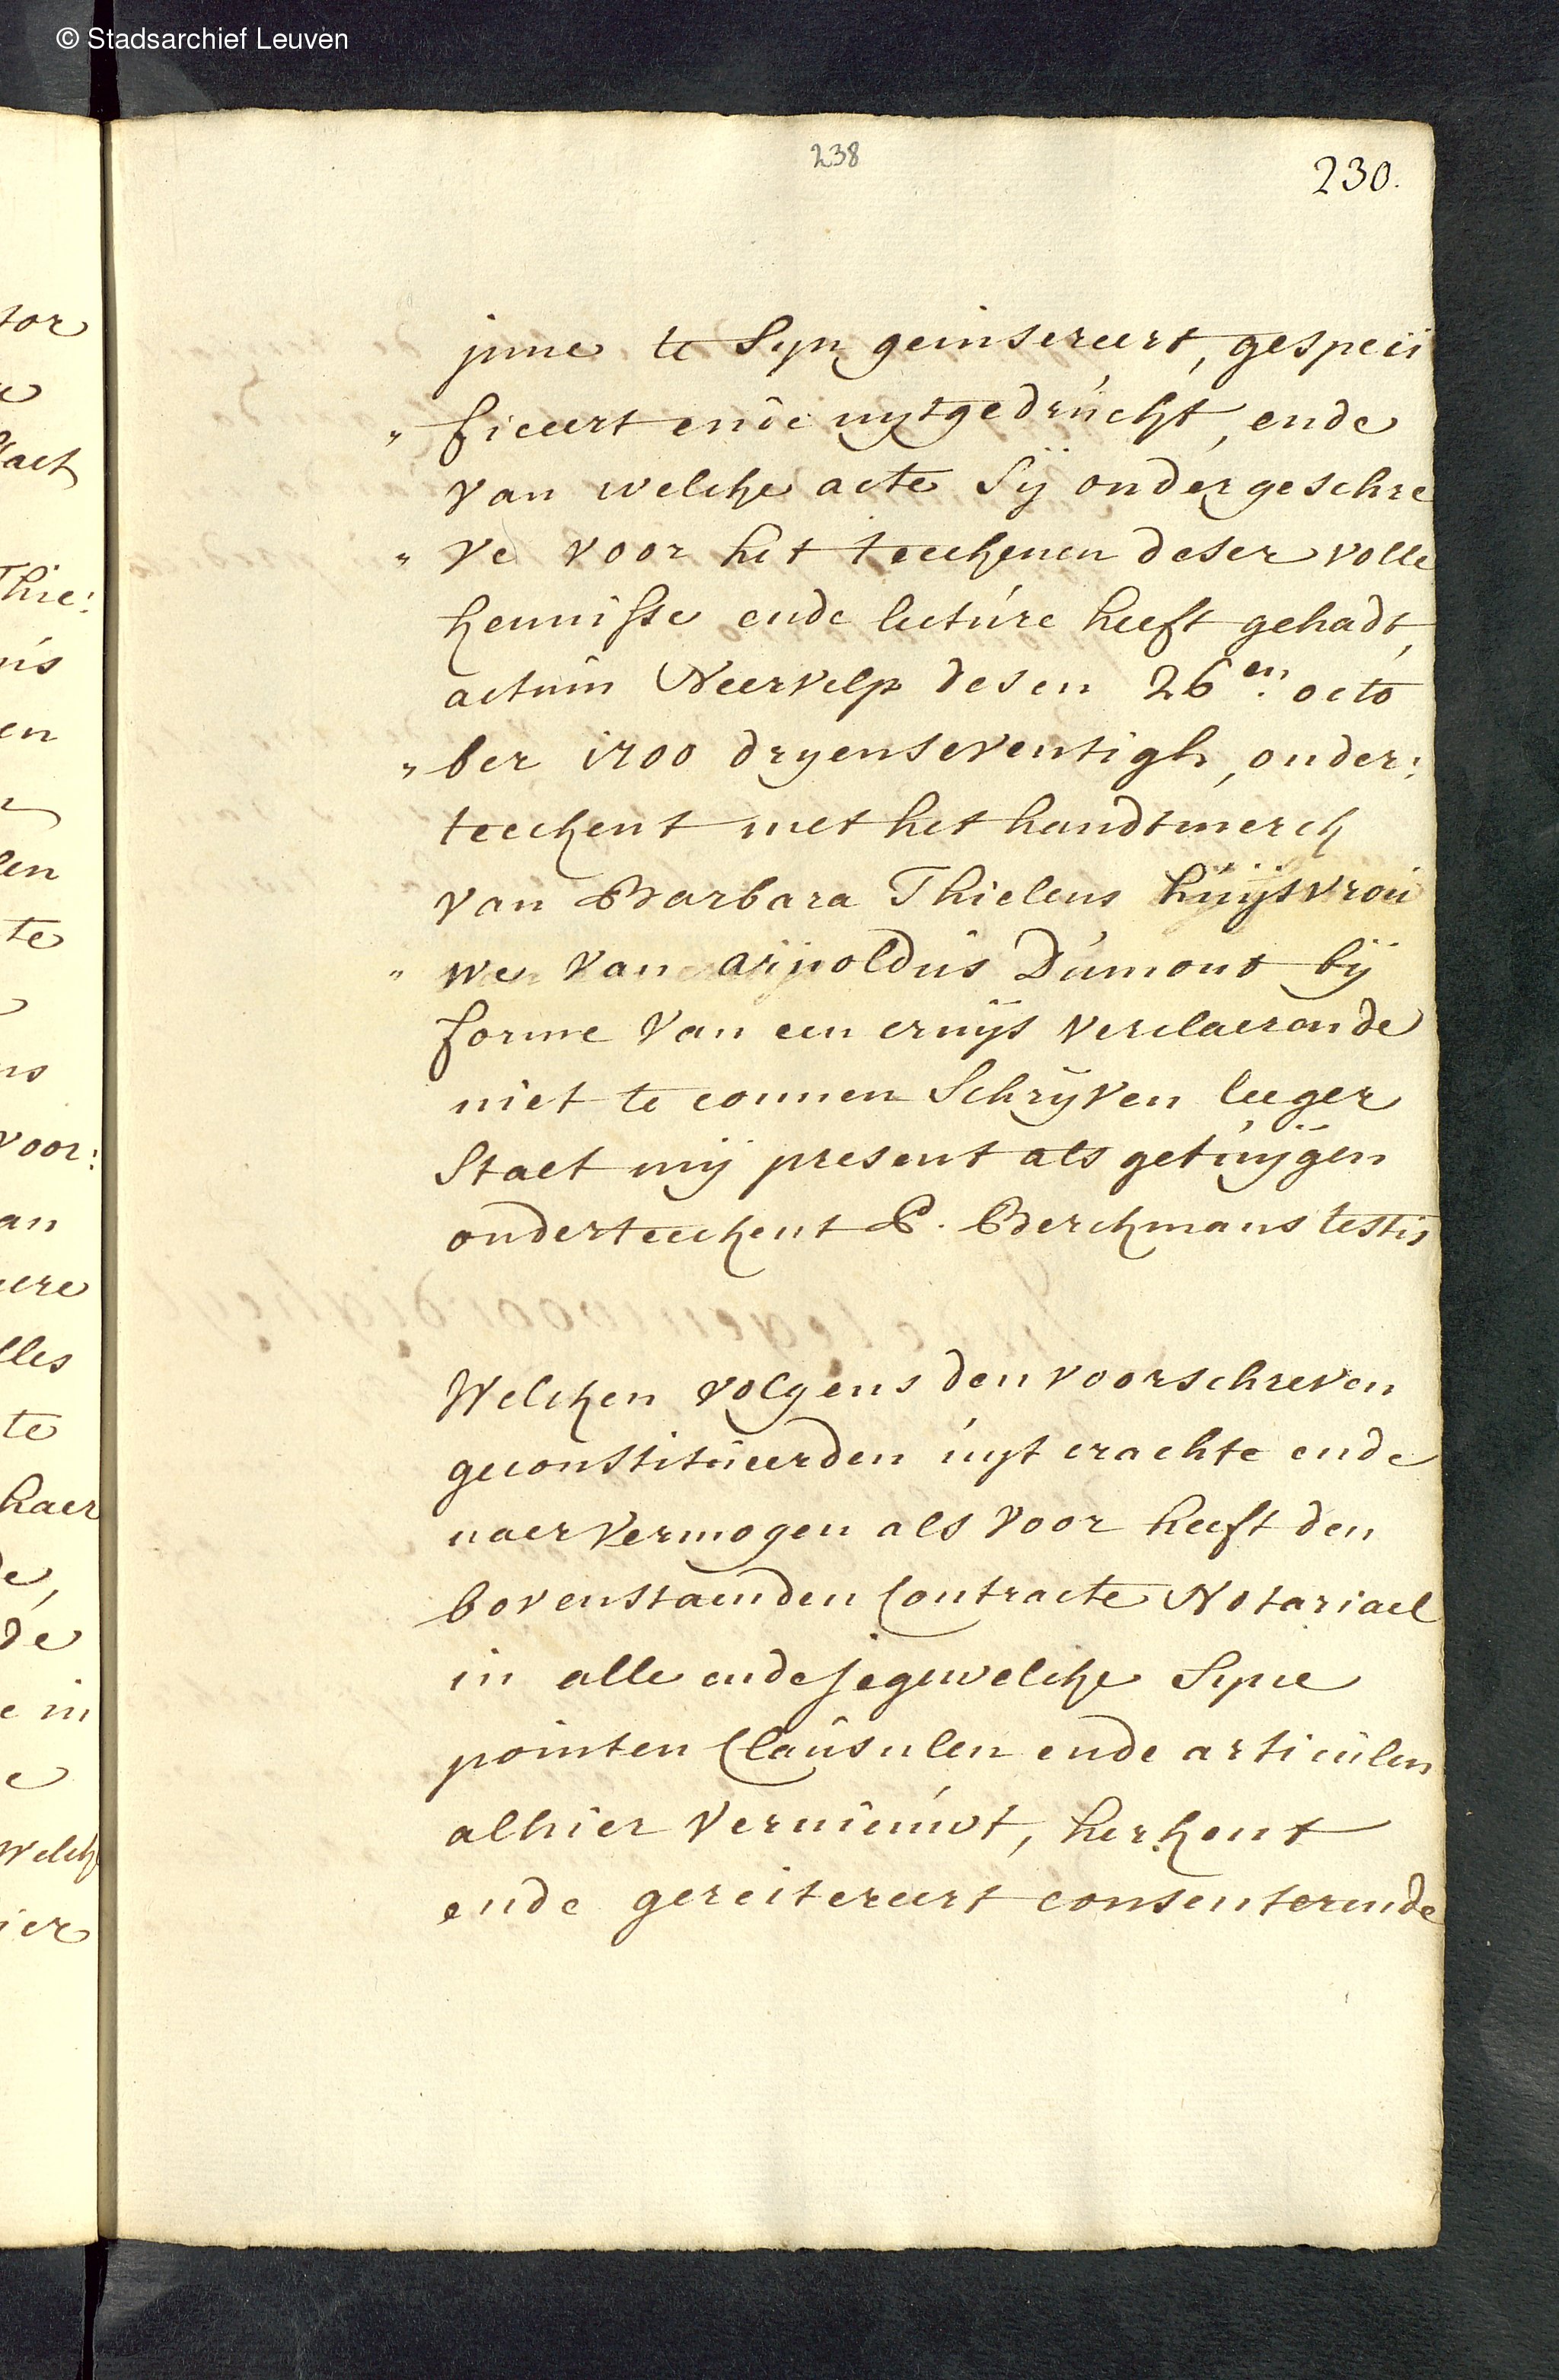 © Stadsarchief Leuven
238
230.
jnne te Syn geinsereert, gespeci
" ficeert ende uytgedruckt, ende
van welcke acte Sij ondergeschre
" ve voor het teeckenen deser volle
kennisse ende lecture heeft gehadt,
actum Neervelp desen 26en. octo
" ber 1700 dryenseventigh, onder:
teeckent met het handtmerck
van Barbara Thielens huijsvrou
" we van arnoldus Dumont bij
forme van een cruijs verclaerende
niet te connen Schryven leeger
Staet mij present als getuijgen
onderteeckent P. Berckmans testis
Welcken volgens den voorschreven
geconstitueerden uyt crachte ende
naer vermogen als voor heeft den
bovenstaenden Contracte Notariael
in alle ende jegewelcke Syne
pointen Clausulen ende articulen
alhier vernieuwt, herkent
ende gereitereert consenterende
tor
Thie:
en
len
te
voor:
an
lles
te
haer
de
e in
welck
ier